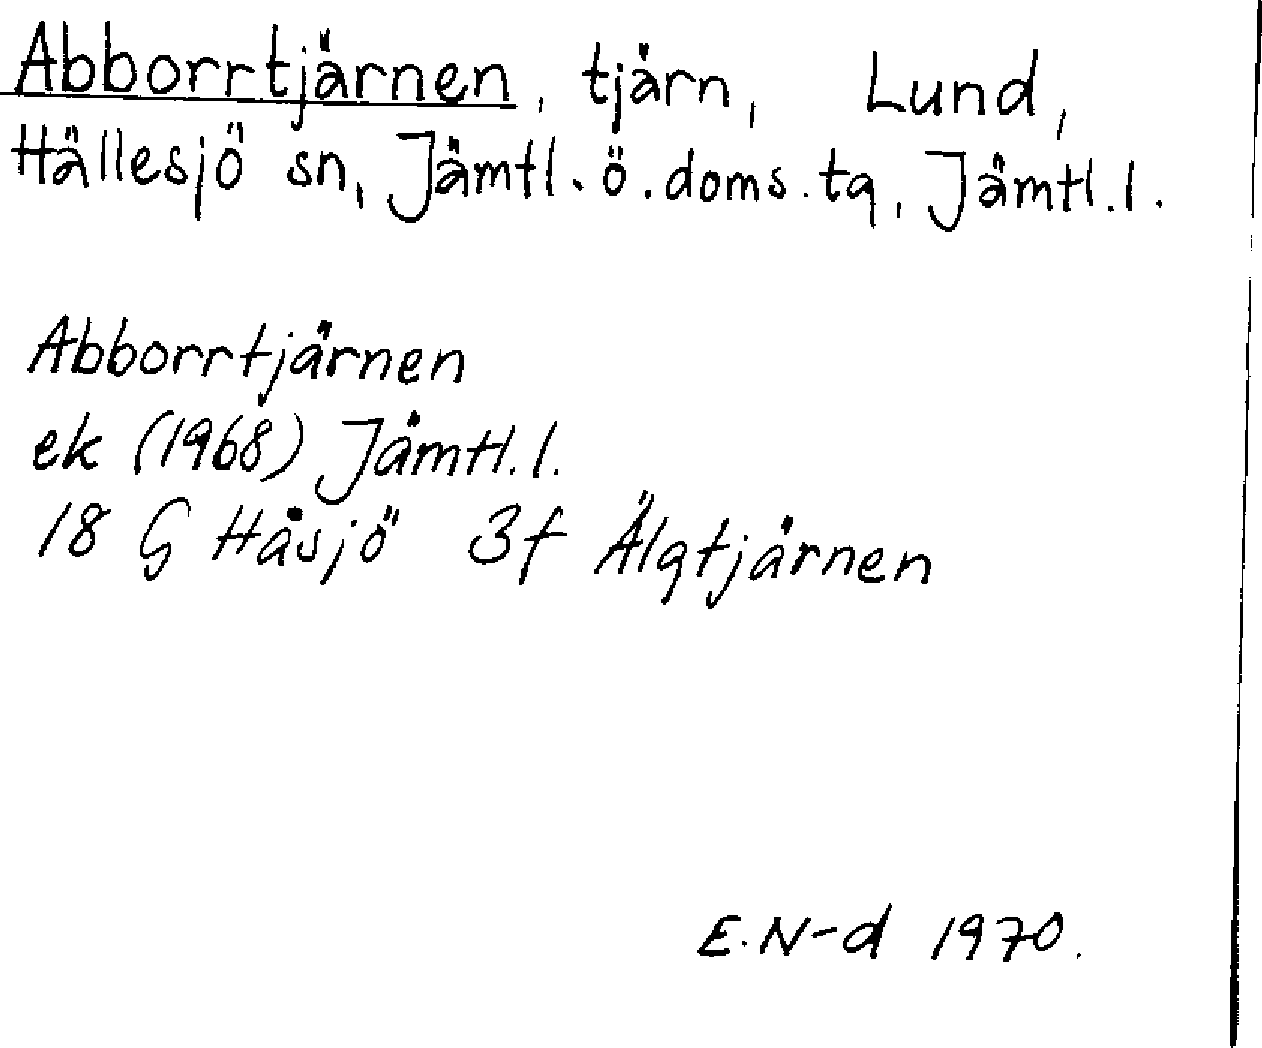 Abborrtjärnen, tjärn, Lund,
Hällesjö sn, Jämtl. ö. doms. tg, Jämtl. l.
Abborrtjärnen
ek (1968) Jämtl. l.
18 G Håsjö 3f Älgtjärnen
E. N-d 1970.